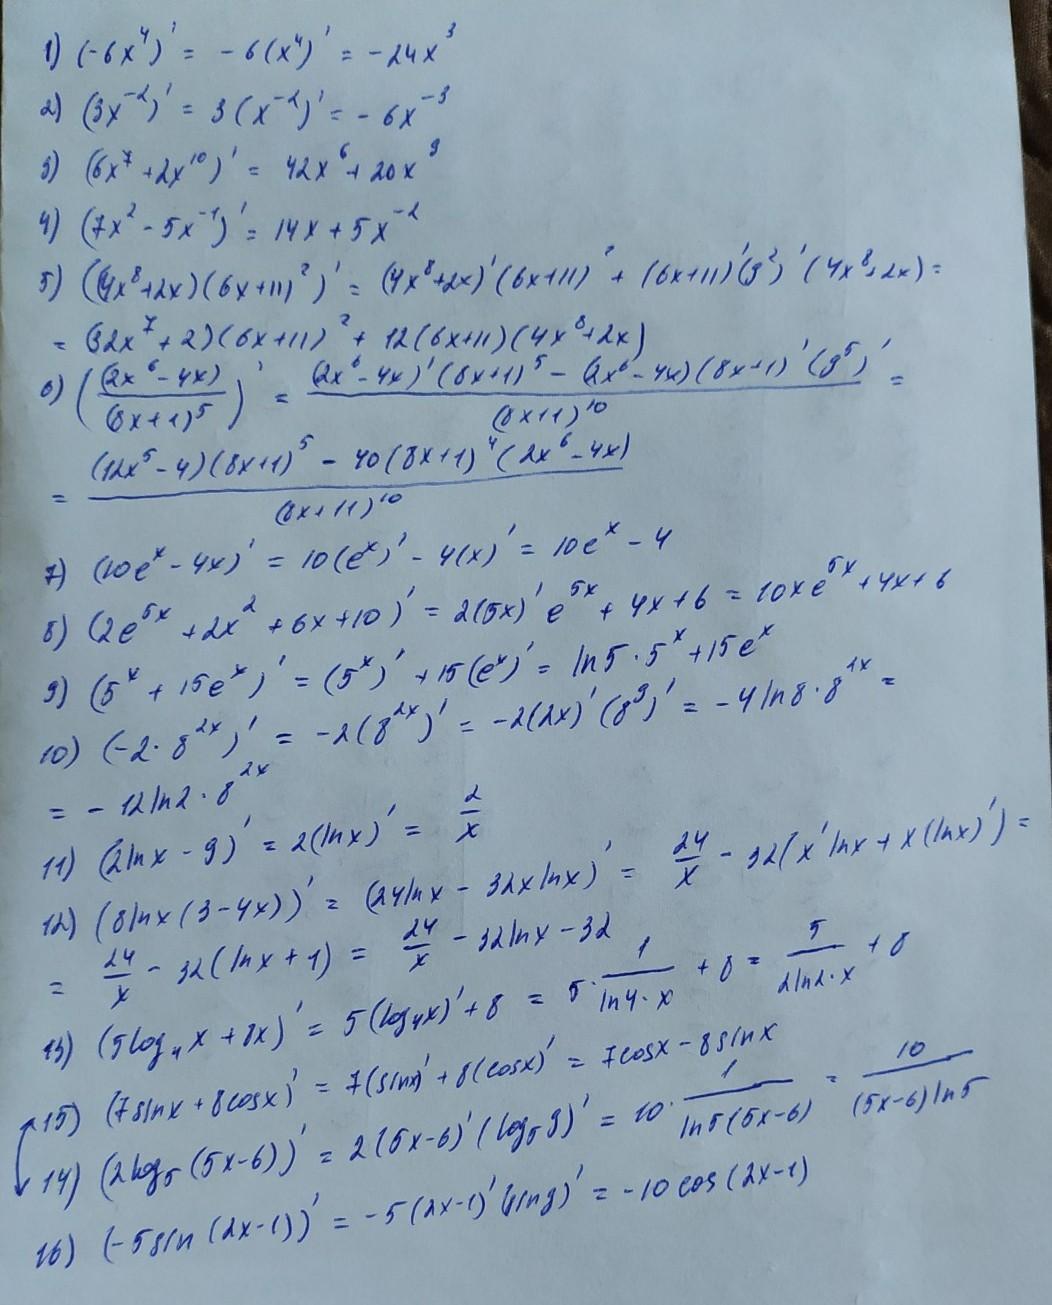 1) (-6x⁴)' = -6(x⁴)' = -24x³
2) (3x⁻²)' = 3(x⁻²)' = -6x⁻³
3) (6x⁷+2x¹⁰)' = 42x⁶+20x⁹
4) (7x² - 5x⁻¹)' = 14x + 5x⁻²
5) ((4x⁸+2x)(6x+11)²)' = (4x⁸+2x)'(6x+11)² + (6x+11)'(y²)'(4x⁸+2x) =
= (32x⁷+2)(6x+11)² + 12(6x+11)(4x⁸+2x)
6) ((2x⁶-4x)/(8x+1)⁵)' = ((2x⁶-4x)'(8x+1)⁵ - (2x⁶-4x)(8x+1)'(y⁵)')/(8x+11)¹⁰ =
= ((12x⁵-4)(8x+1)⁵ - 40(8x+1)⁴(2x⁶-4x))/(8x+11)¹⁰
7) (10eˣ - 4x)' = 10(eˣ)' - 4(x)' = 10eˣ - 4
8) (2e⁵ˣ + 2x² + 6x + 10)' = 2(5x)'e⁵ˣ + 4x + 6 = 10xe⁵ˣ + 4x + 6
9) (5ˣ + 15eˣ)' = (5ˣ)' + 15(eˣ)' = ln5·5ˣ + 15eˣ
10) (-2·8²ˣ)' = -2(8²ˣ)' = -2(2x)'(8ʸ)' = -4ln8·8²ˣ =
= -12ln2·8²ˣ
11) (2lnx - 9)' = 2(lnx)' = 2/x
12) (8lnx(3-4x))' = (24lnx - 32xlnx)' = 24/x - 32(x'lnx + x(lnx)') =
= 24/x - 32(lnx + 1) = 24/x - 32lnx - 32
13) (5log₄x + 8x)' = 5(log₄x)' + 8 = 5·1/(ln4·x) + 8 = 5/(2ln2·x) + 8
15) (7sinx + 8cosx)' = 7(sinx)' + 8(cosx)' = 7cosx - 8sinx
14) (2log₅(5x-6))' = 2(5x-6)'(log₅y)' = 10·1/(ln5(5x-6)) = 10/((5x-6)ln5)
16) (-5sin(2x-1))' = -5(2x-1)'(siny)' = -10cos(2x-1)